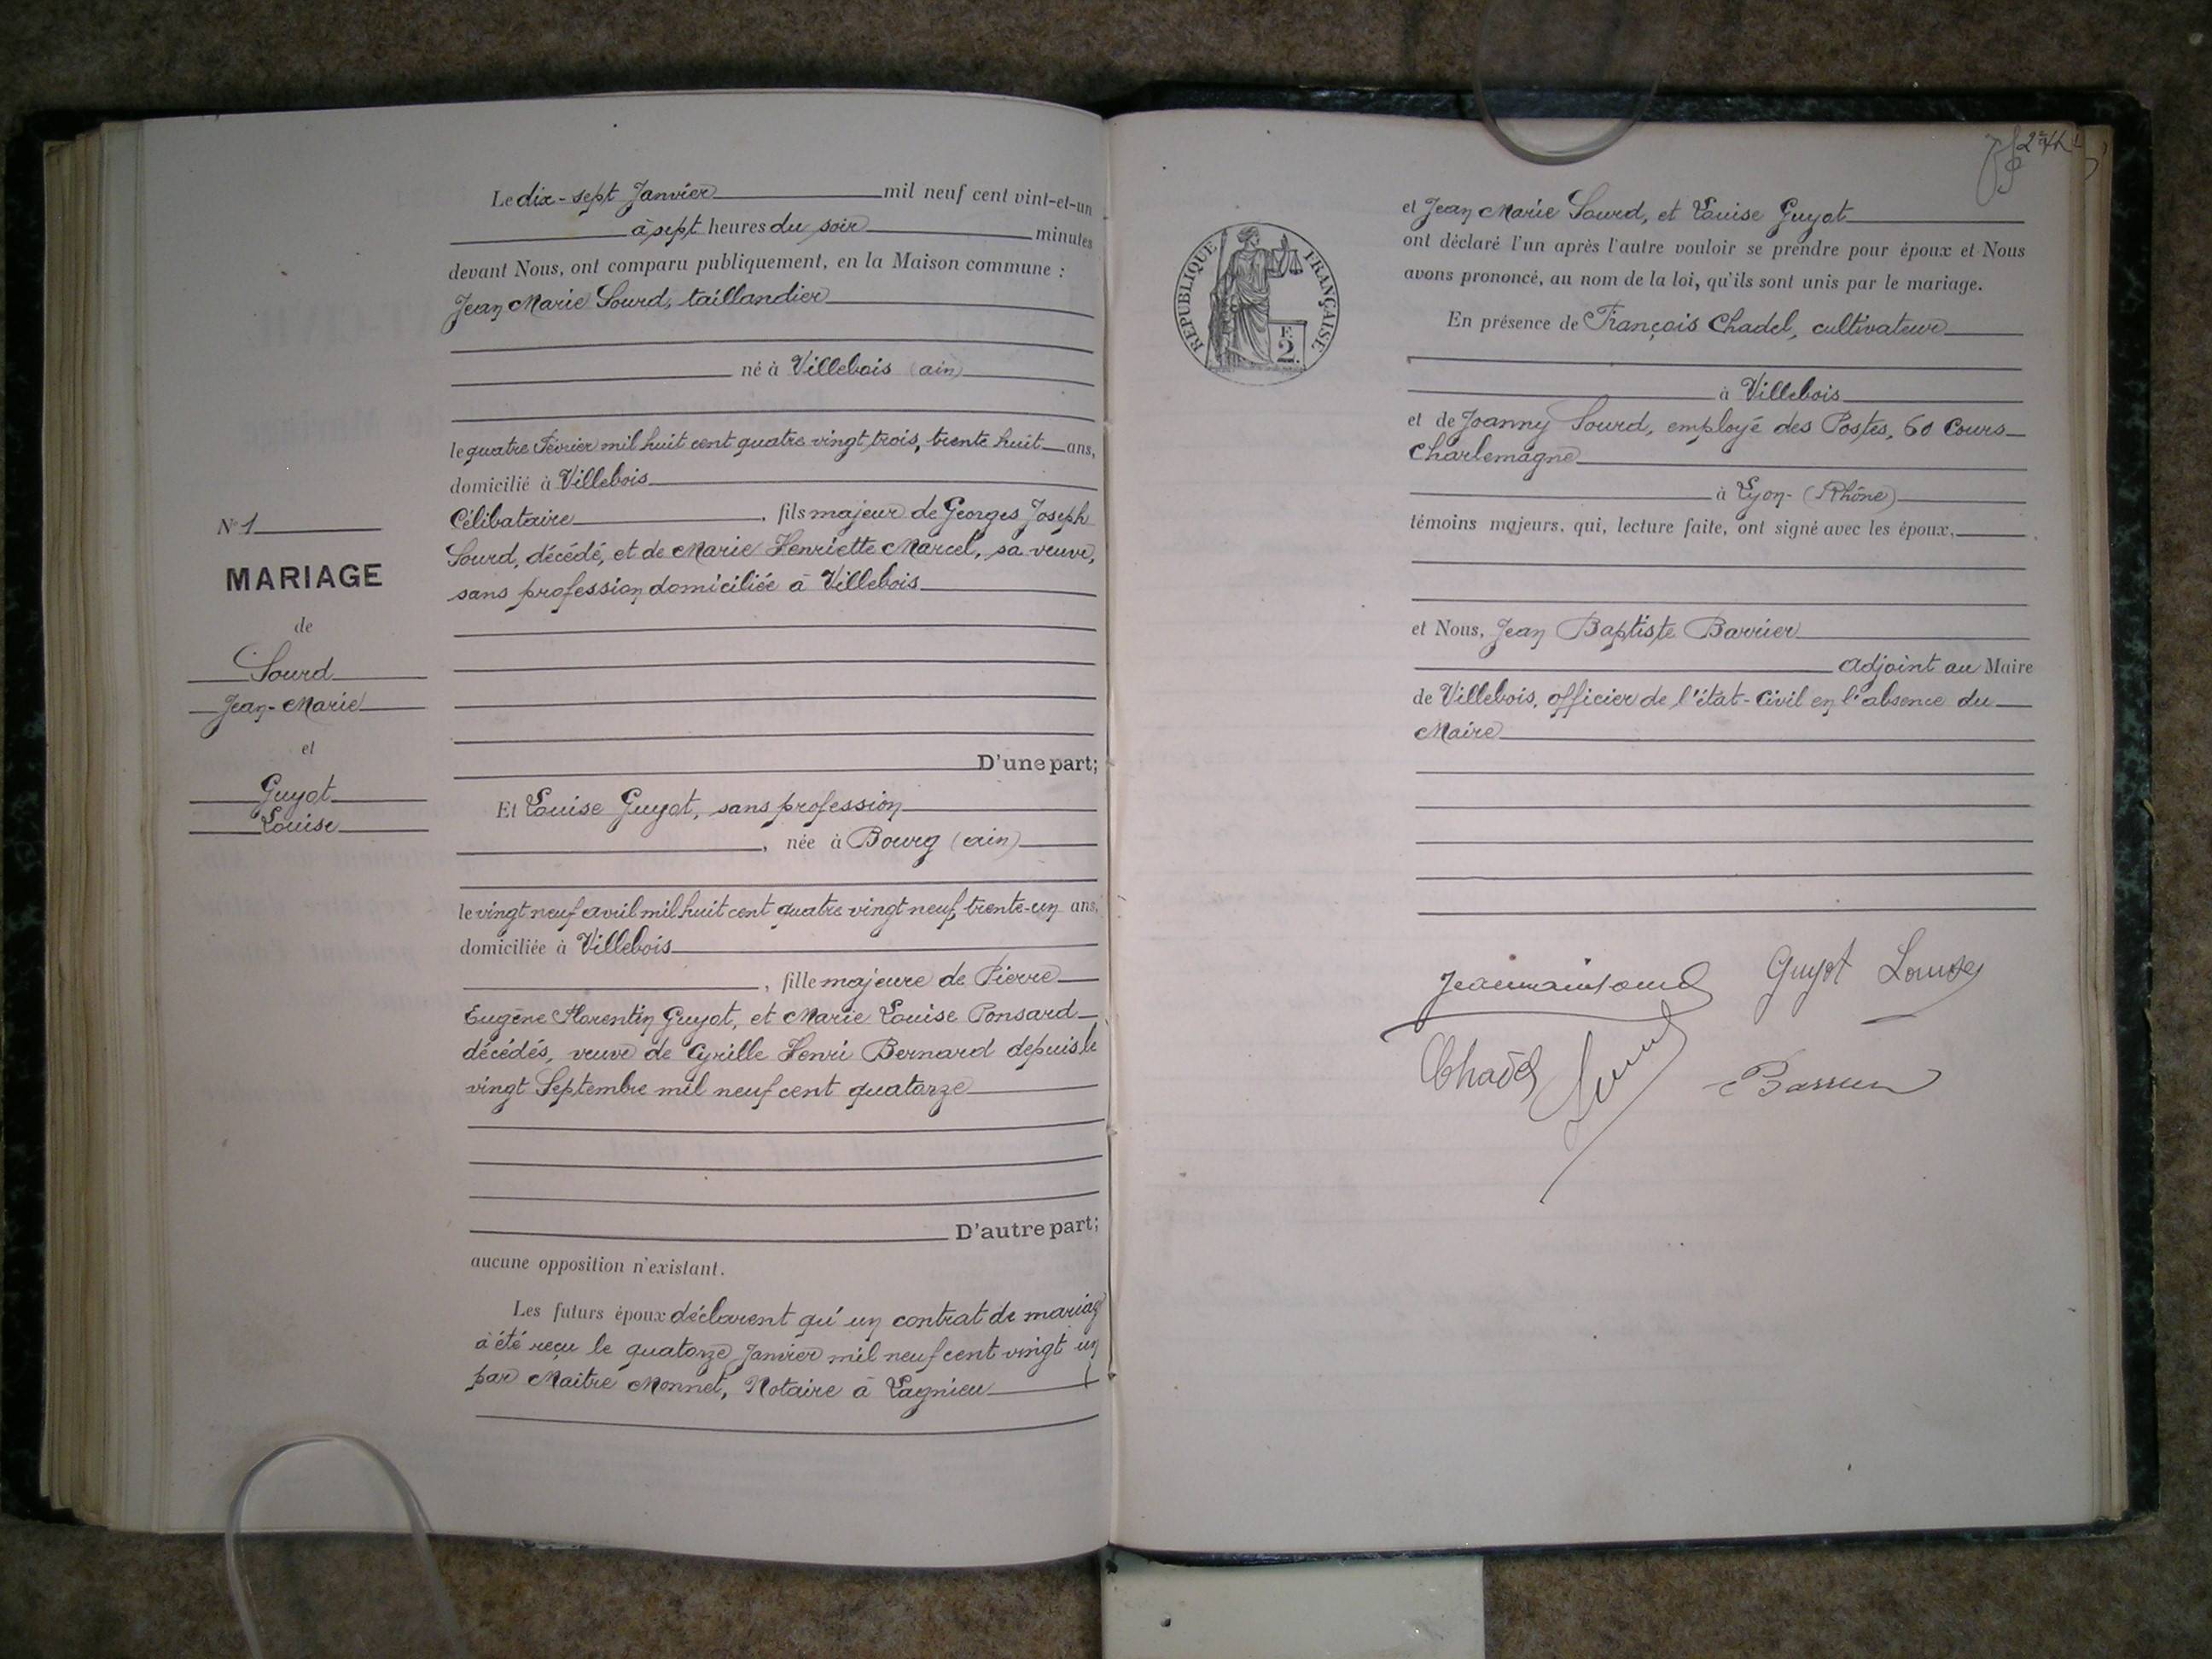 N° 1
MARIAGE
de
Sourd
Jean-Marie
et
Guyot
Louise
Le dix-sept Janvier mil neuf cent vint-et-un
à sept heures du soir minutes
devant Nous, ont comparu publiquement, en la Maison commune :
Jean Marie Sourd, taillandier
né à Villebois (ain)
le quatre Février mil huit cent quatre vingt trois, trente huit ans,
domicilié à Villebois
Célibataire, fils majeur de Georges Joseph
Sourd, décédé, et de Marie Henriette Marcel, sa veuve,
sans profession domiciliée à Villebois
D'une part;
Et Louise Guyot, sans profession
, née à Bourg (ain)
le vingt neuf avril mil huit cent quatre vingt neuf, trente-un ans,
domiciliée à Villebois
, fille majeure de Pierre
Eugène Florentin Guyot, et Marie Louise Ponsard
décédés, veuve de Cyrille Henri Bernard depuis le
vingt Septembre mil neuf cent quatorze
D'autre part;
aucune opposition n'existant.
Les futurs époux déclarent qu'un contrat de mariag
a été reçu le quatorze Janvier mil neuf cent vingt un
par Maitre Monnet, Notaire à Lagnieu
RÉPUBLIQUE FRANÇAISE
F.
2
et Jean Marie Sourd, et Louise Guyot
ont déclaré l'un après l'autre vouloir se prendre pour époux et Nous
avons prononcé, au nom de la loi, qu'ils sont unis par le mariage.
En présence de François Chadel, cultivateur
à Villebois
et de Joanny Sourd, employé des Postes, 60 Cours
Charlemagne
à Lyon - (Rhône)
témoins majeurs. qui, lecture faite, ont signé avec les époux,
et Nous, Jean Baptiste Barrier
Adjoint au Maire
de Villebois, officier de l'état-Civil en l'absence du
Maire
Guyot Louise
Chadel Sourd Barrier